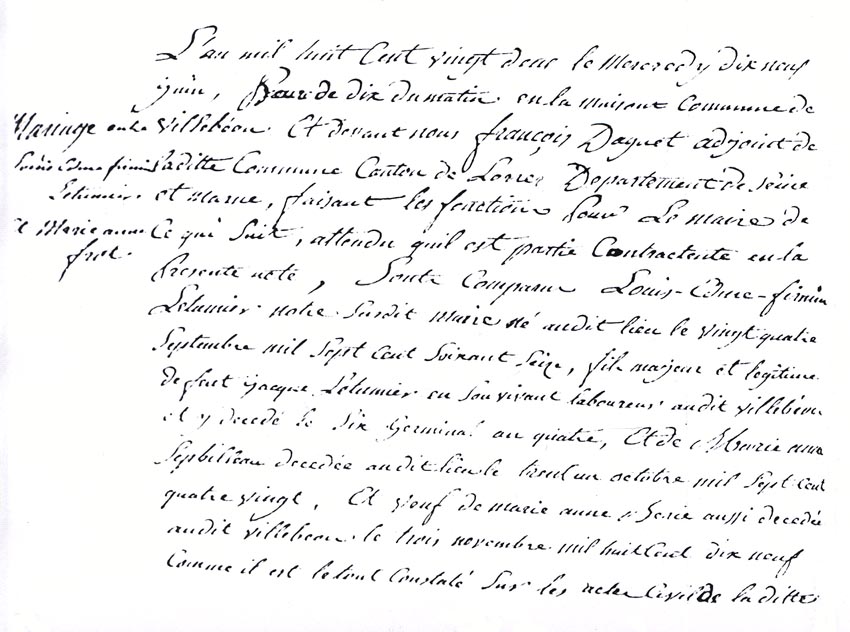 L'an mil huit Cent vingt deux le Mercredy dix neuf
juin, heure de dix du matin en la maison Commune de
villebéon Et devant nous françois Daguet adjoint de
laditte Commune Canton de Lorrez Departement de Seine
et marne, faisant les fonction pour Le maire de
Ce qui Suit, attendu quil est partie Contractente en la
Presente acte, Sont Comparu Louis-Côme-firmin
Lelumier notre Susdit maire né audit lieu le vingt quatre
Septembre mil Sept Cent Soixant Seize, fils majeur et legitime
de feut jacque Lelumier en Son vivant laboureur audit villebéon
et y decedé le Six Germinal an quatre, Et de Marie anne
decedée audit lieu le trent un octobre mil Sept Cent
quatre vingt, Et veuf de marie anne aussi decedée
audit villebeon le trois novembre mil huit Cent dix neuf
Comme il est le tout Constaté Sur les actes Civil de la ditte
Mariage entre
Louis Côme firmin
Lelumier
et Marie anne
frot.